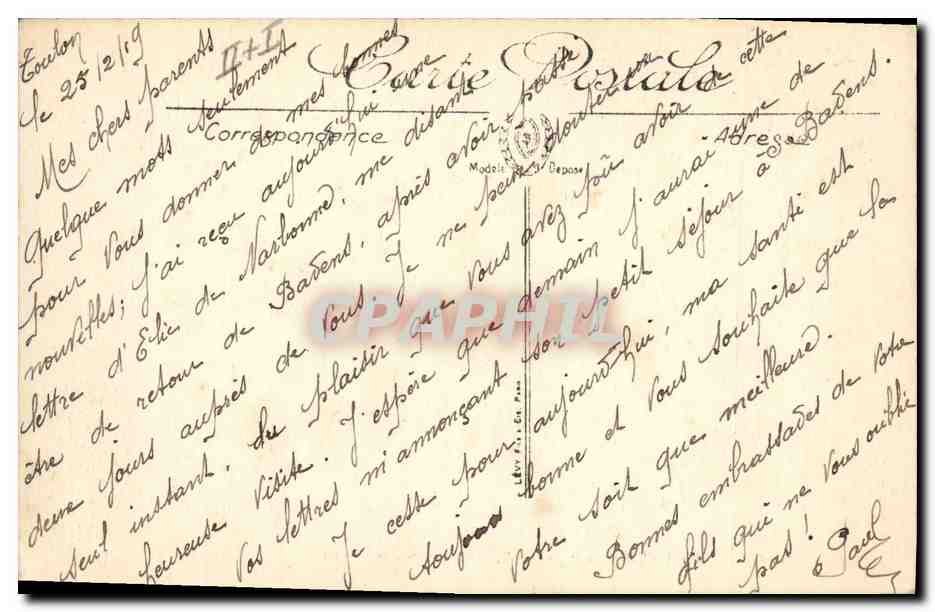 Toulon
le 25/2/19
II+I
Carte Postale
Correspondance
Adresse
Modèle Déposé
LÉVY Fils & Cie, Paris
CPAPHIL
Mes chers parents
Quelque mots seulement
pour vous donner de mes bonnes
nouvelles; j'ai reçu aujourd'hui une
lettre d'Elie de Narbonne, me disant
être de retour de Badens, après avoir passé
deux jours auprès de vous. Je ne peux douter un
seul instant, du plaisir que vous avez pû avoir de cette
heureuse visite. J'espère que demain j'aurai une de
vos lettres m'annonçant son petit séjour à Badens.
Je cesse pour aujourd'hui, ma santé est
toujours bonne et vous souhaite que la
votre soit que meilleure.
Bonnes embrassades de votre
fils qui ne vous oublie
pas! Paul